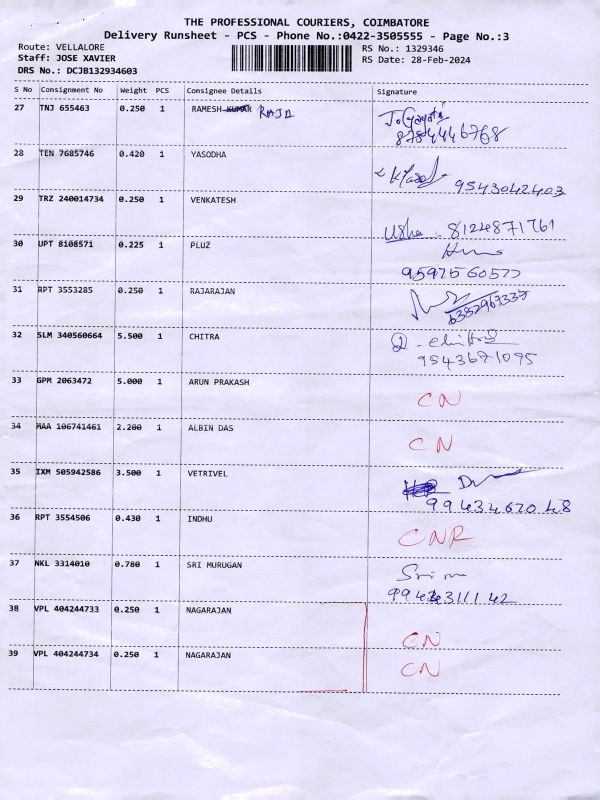 THE PROFESSIONAL COURIERS, COIMBATORE
Delivery Runsheet - PCS - Phone No.:0422-3505555 - Page No.:3
Route: VELLALORE
Staff: JOSE XAVIER
DRS No.: DCJB132934603
RS No.: 1329346
RS Date: 28-Feb-2024
S No Consignment No Weight PCS Consignee Details Signature
27 TNJ 655463 0.250 1 RAMESH KUMAR RAJA
8784446768
28 TEN 7685746 0.420 1 YASODHA
9543042403
29 TRZ 240014734 0.250 1 VENKATESH
Usha 8124871761
30 UPT 8108571 0.225 1 PLUZ
9597560577
31 RPT 3553285 0.250 1 RAJARAJAN
6382967337
32 SLM 340560664 5.500 1 CHITRA
9543671095
33 GPM 2063472 5.000 1 ARUN PRAKASH
CN
34 MAA 106741461 2.200 1 ALBIN DAS
CN
35 IXM 505942586 3.500 1 VETRIVEL
9943467048
36 RPT 3554506 0.430 1 INDHU
CNR
37 NKL 3314010 0.780 1 SRI MURUGAN
38 VPL 404244733 0.250 1 NAGARAJAN
CN
39 VPL 404244734 0.250 1 NAGARAJAN
CN